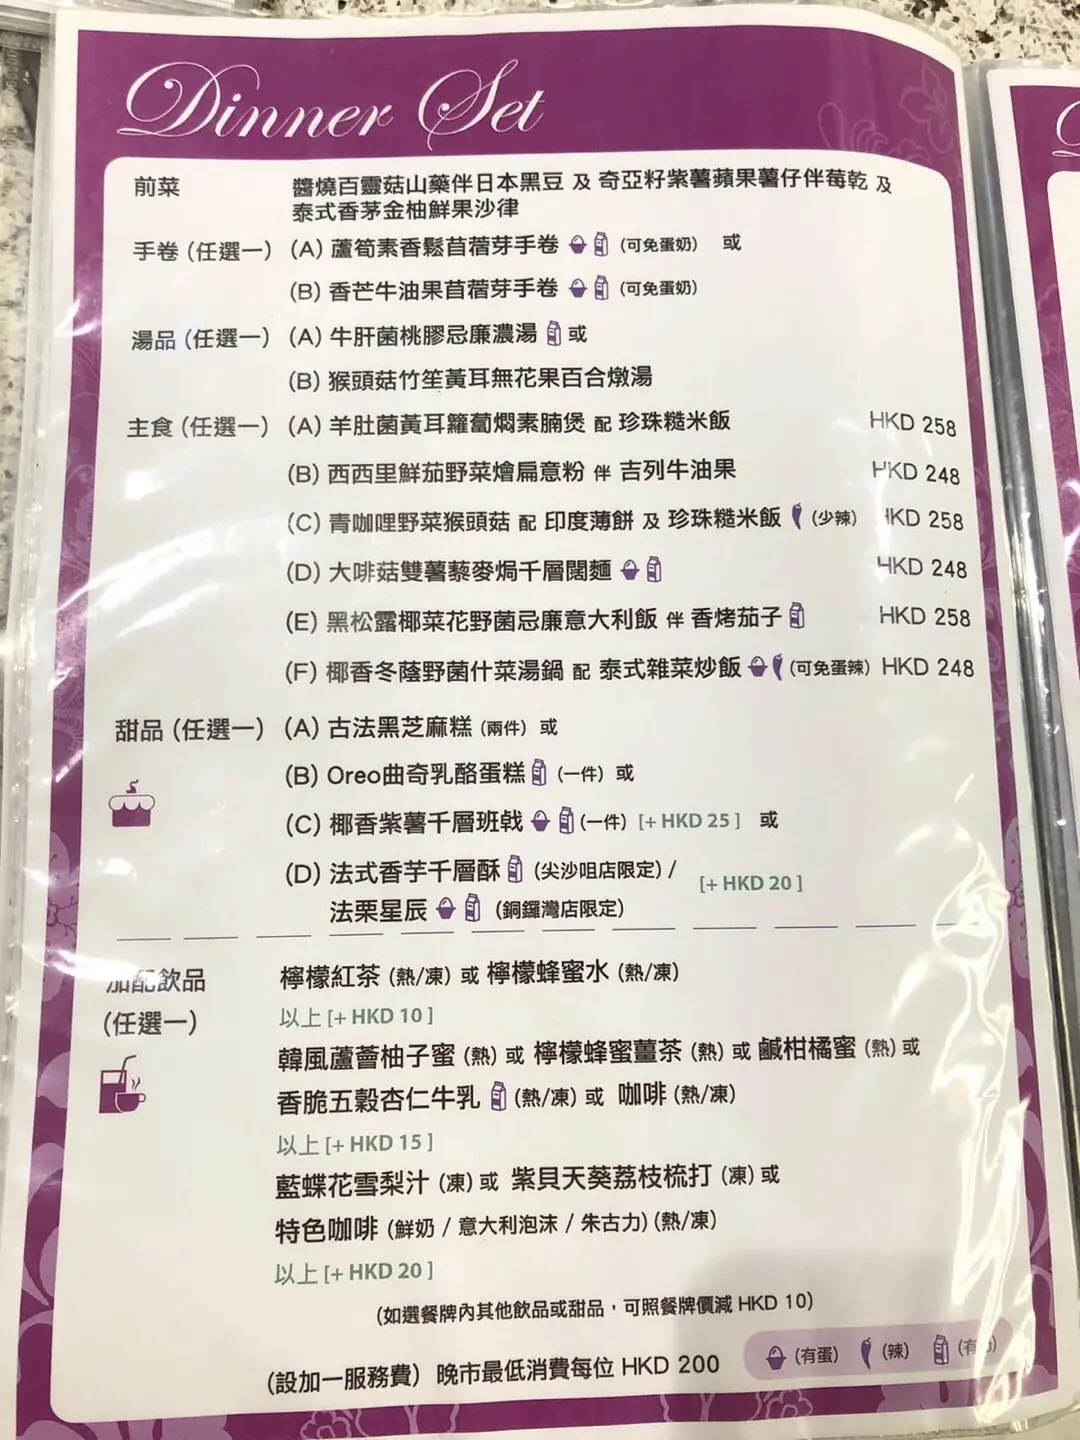 Dinner Set
前菜 醬燒百靈菇山藥伴日本黑豆 及 奇亞籽紫薯蘋果薯仔伴莓乾 及
泰式香茅金柚鮮果沙律
手卷 (任選一) (A) 蘆筍素香鬆苜蓿芽手卷 (可免蛋奶) 或
(B) 香芒牛油果苜蓿芽手卷 (可免蛋奶)
湯品 (任選一) (A) 牛肝菌桃膠忌廉濃湯 或
(B) 猴頭菇竹笙黃耳無花果百合燉湯
主食 (任選一) (A) 羊肚菌黃耳籮蔔燜素腩煲 配 珍珠糙米飯 HKD 258
(B) 西西里鮮茄野菜燴扁意粉 伴 吉列牛油果 HKD 248
(C) 青咖哩野菜猴頭菇 配 印度薄餅 及 珍珠糙米飯 (少辣) HKD 258
(D) 大啡菇雙薯藜麥焗千層闊麵 HKD 248
(E) 黑松露椰菜花野菌忌廉意大利飯 伴 香烤茄子 HKD 258
(F) 椰香冬蔭野菌什菜湯鍋 配 泰式雜菜炒飯 (可免蛋辣) HKD 248
甜品 (任選一) (A) 古法黑芝麻糕 (兩件) 或
(B) Oreo曲奇乳酪蛋糕 (一件) 或
(C) 椰香紫薯千層班戟 (一件) [+ HKD 25] 或
(D) 法式香芋千層酥 (尖沙咀店限定) /
[+ HKD 20]
法栗星辰 (銅鑼灣店限定)
加配飲品 檸檬紅茶 (熱/凍) 或 檸檬蜂蜜水 (熱/凍)
(任選一)
以上 [+ HKD 10]
韓風蘆薈柚子蜜 (熱) 或 檸檬蜂蜜薑茶 (熱) 或 鹹柑橘蜜 (熱) 或
香脆五穀杏仁牛乳 (熱/凍) 或 咖啡 (熱/凍)
以上 [+ HKD 15]
藍蝶花雪梨汁 (凍) 或 紫貝天葵荔枝梳打 (凍) 或
特色咖啡 (鮮奶 / 意大利泡沫 / 朱古力) (熱/凍)
以上 [+ HKD 20]
(如選餐牌內其他飲品或甜品，可照餐牌價減 HKD 10)
(有蛋) (辣) (有
(設加一服務費) 晚市最低消費每位 HKD 200